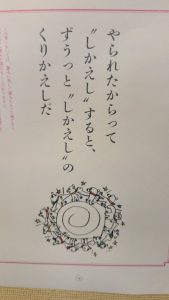 やられたからって
〝しかえし〟すると、
ずうっと〝しかえし〟の
くりかえしだ